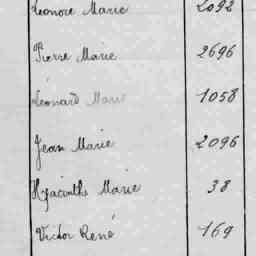 Léonore Marie 2092
Pierre Marie 2696
Léonard Marie 1058
Jean Marie 2096
Hyacinthe Marie 38
Victor René 169